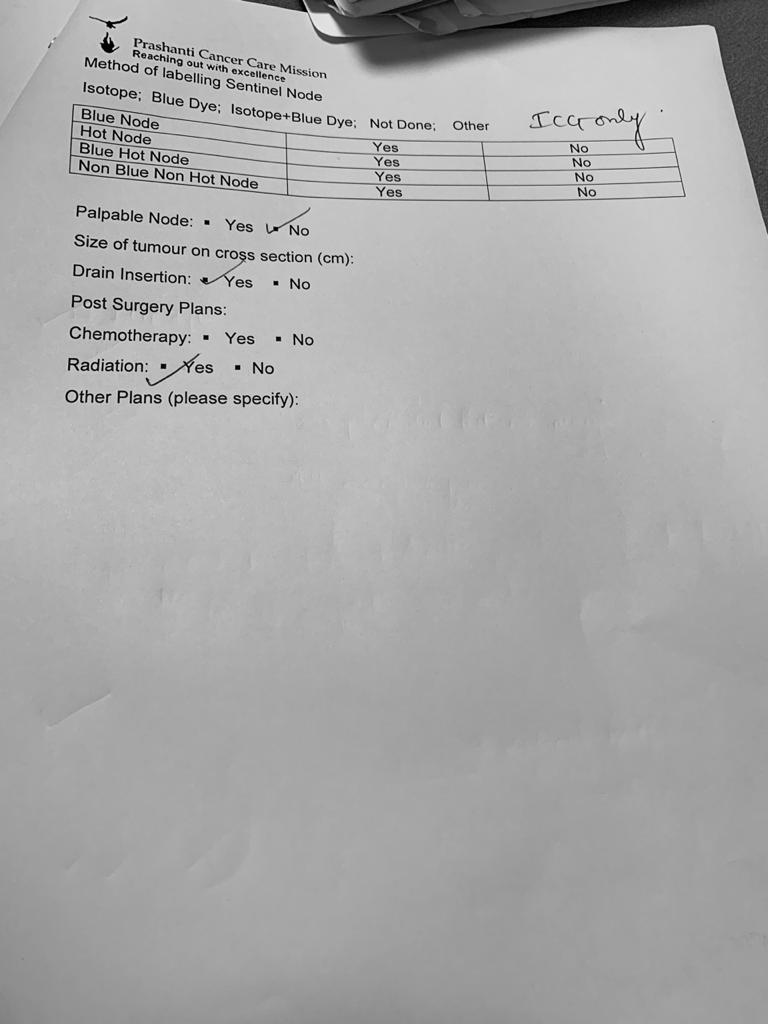 Prashanti Cancer Care Mission
Reaching out with excellence
Method of labelling Sentinel Node
Isotope; Blue Dye; Isotope+Blue Dye; Not Done; Other ICG only
Blue Node Yes No
Hot Node Yes No
Blue Hot Node Yes No
Non Blue Non Hot Node Yes No
Palpable Node: ▪ Yes ▪ No
Size of tumour on cross section (cm):
Drain Insertion: ▪ Yes ▪ No
Post Surgery Plans:
Chemotherapy: ▪ Yes ▪ No
Radiation: ▪ Yes ▪ No
Other Plans (please specify):